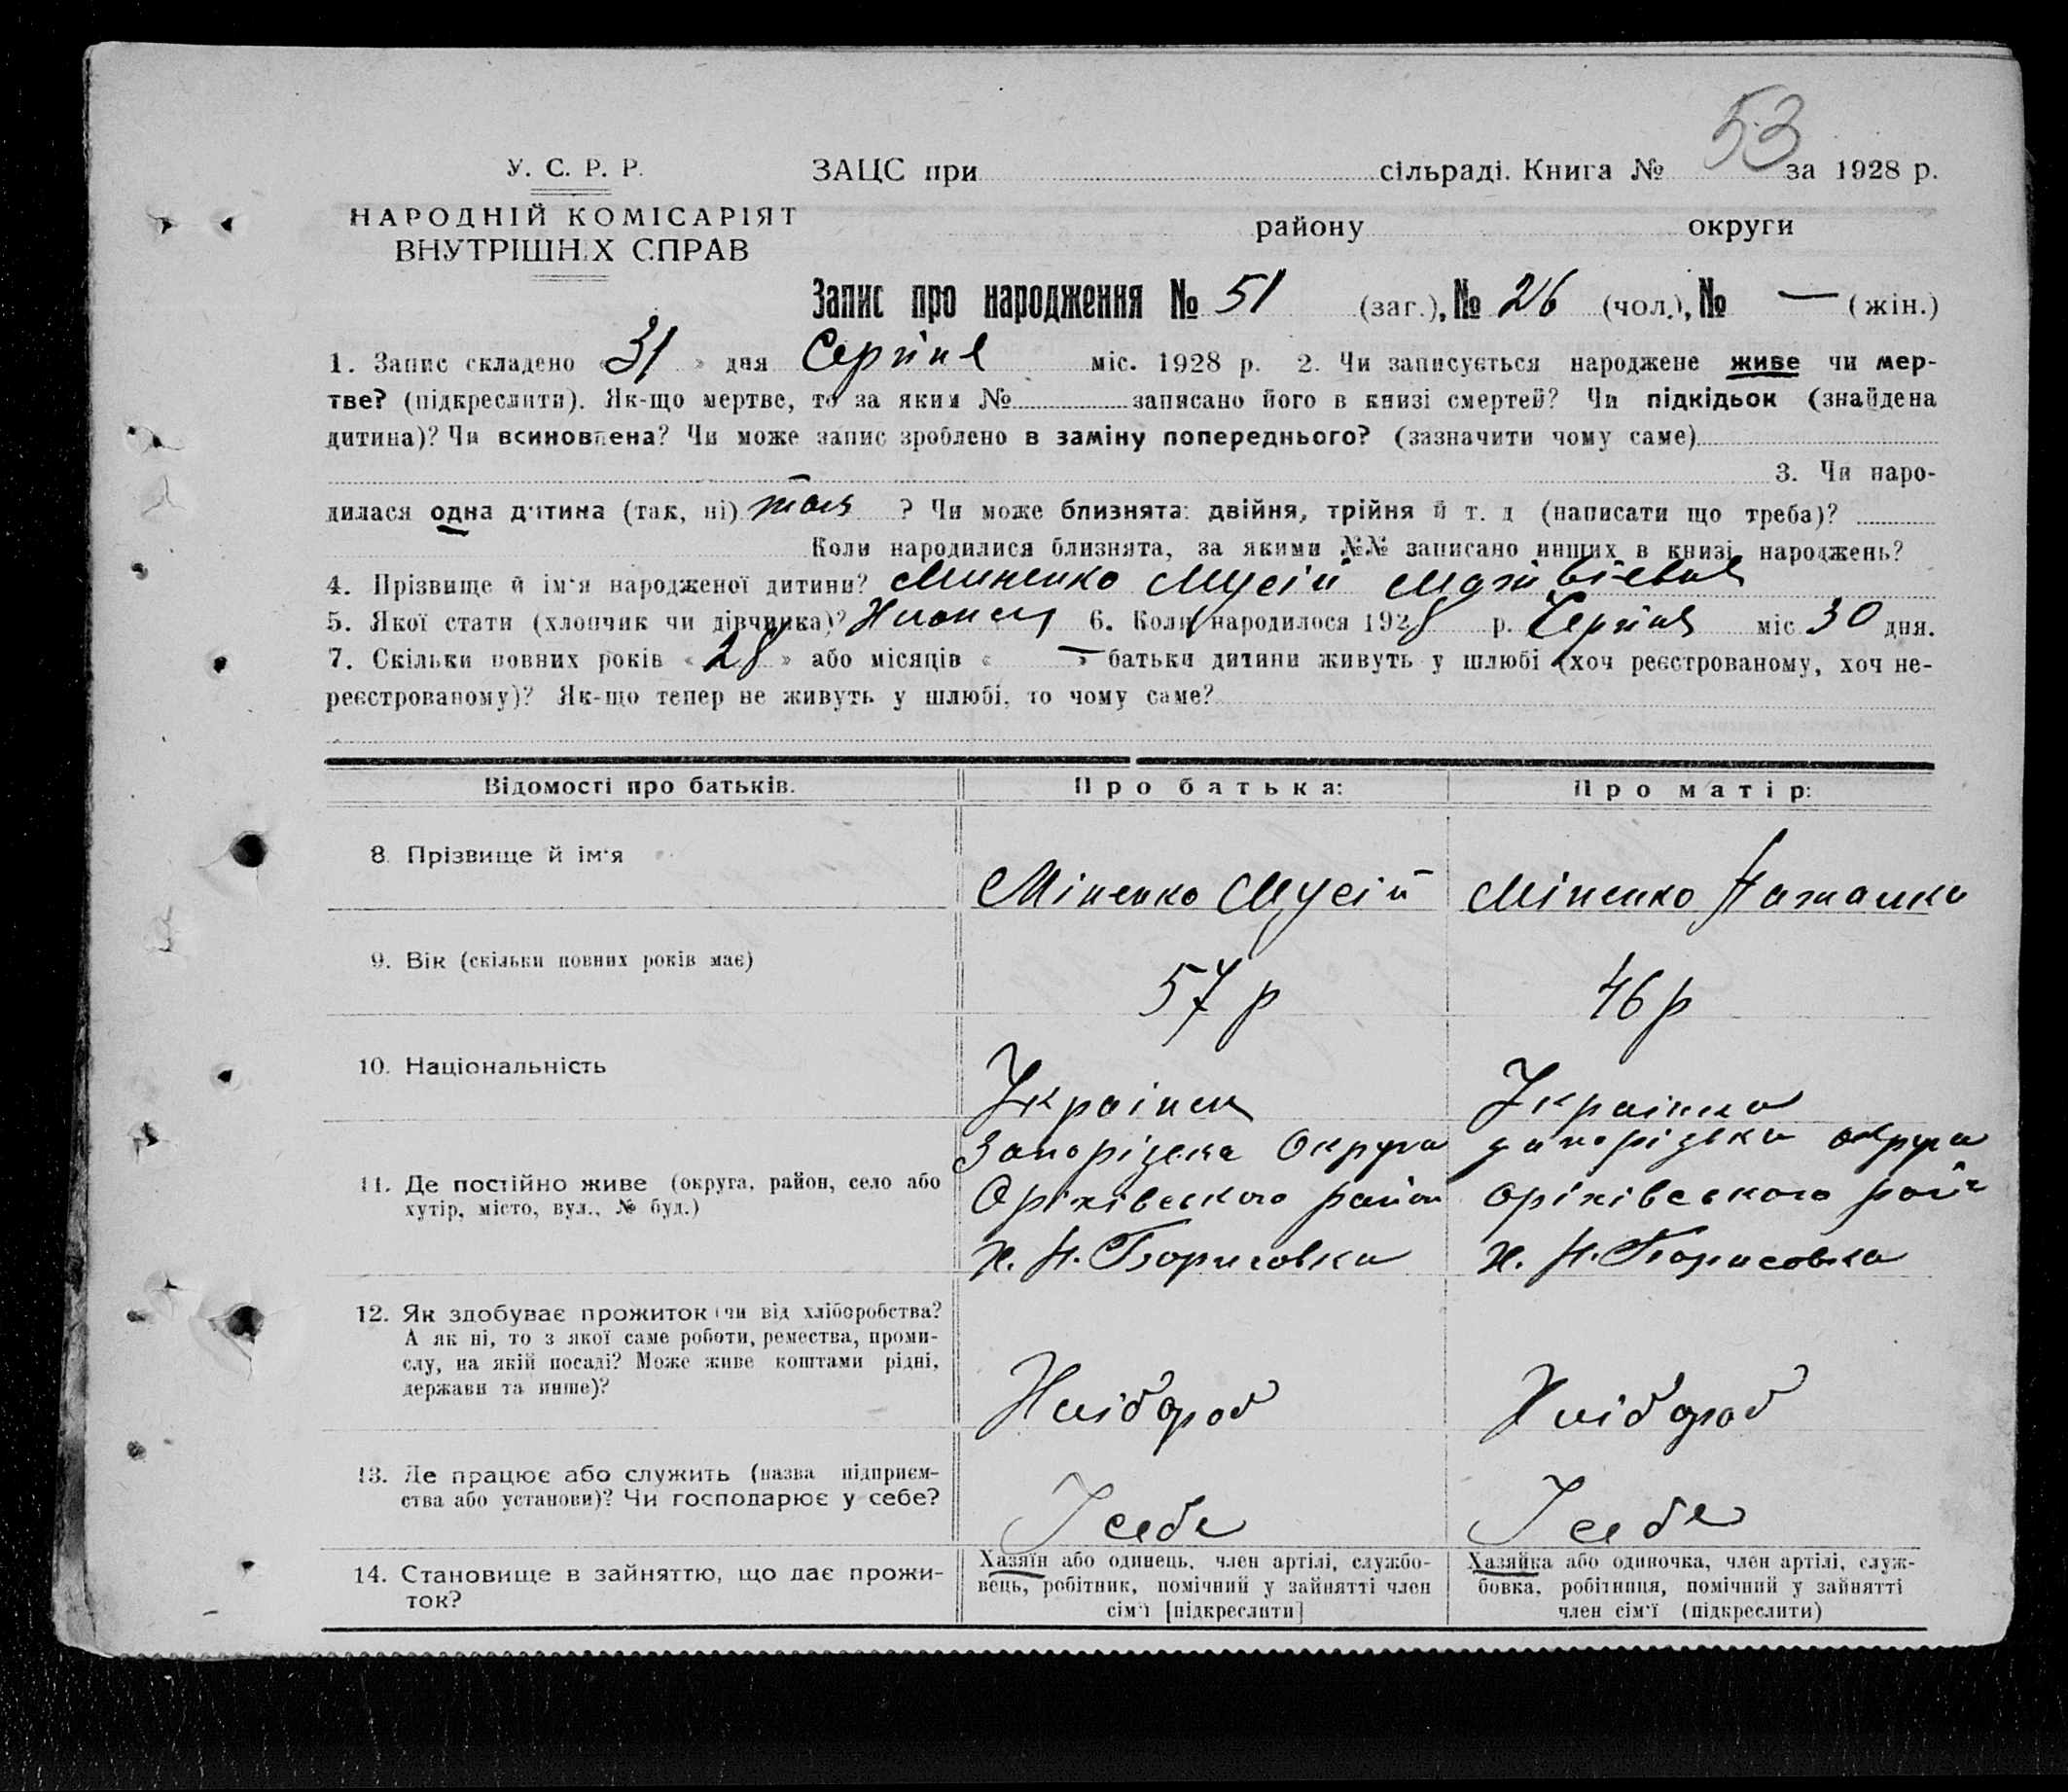 53
У. С. Р. Р. ЗАЦС при сільраді. Книга № за 1928 р.
НАРОДНІЙ КОМІСАРІЯТ
ВНУТРІШН.Х СПРАВ
району округи
Запис про народження № 51 (заг.), № 26 (чол.), № — (жін.)
1. Запис складено « 31 » дня Серпня міс. 1928 р. 2. Чи записується народжене живе чи мер-
тве? (підкреслити). Як-що мертве, то за яким № записано його в книзі смертей? Чи підкідьок (знайдена
дитина)? Чи всиновлена? Чи може запис зроблено в заміну попереднього? (зазначити чому саме)
3. Чи наро-
дилася одна дитина (так, ні) так ? Чи може близнята: двійня, трійня й т. д (написати що треба)?
Коли народилися близнята, за якими №№ записано инших в книзі народжень?
4. Прізвище й ім'я народженої дитини? Миненко Мусій
5. Якої стати (хлопчик чи дівчинка)? Хлопец 6. Коли народилося 1928 р. Серпня міс 30 дня.
7. Скільки повних років « 28 » або місяців « — » батьки дитини живуть у шлюбі (хоч реєстрованому, хоч не-
реєстрованому)? Як-що тепер не живуть у шлюбі, то чому саме?
Відомості про батьків. Про батька: Про матір:
8. Прізвище й ім'я
Міненко Мусій Міненко Наталка
9. Вік (скільки повних років має)
57 р 46 р
10. Національність
Українец Українка
Запорізька Округа Запорізька округа
11. Де постійно живе (округа, район, село або
хутір, місто, вул., № буд.)
Оріхівського район Оріхівського рай
Х. Н. Борисовка Х. Н. Борисовка
12. Як здобуває прожиток (чи від хліборобства?
А як ні, то з якої саме роботи, ремества, проми-
слу, на якій посаді? Може живе коштами рідні,
держави та инше)?
Хлібороб Хлібороб
13. Де працює або служить (назва підприєм-
ства або установи)? Чи господарює у себе?
У себе У себе
14. Становище в зайняттю, що дає прожи-
ток?
Хазяїн або одинець, член артілі, службо-
вець, робітник, помічний у зайнятті член
сім'ї [підкреслити]
Хазяйка або одиночка, член артілі, служ-
бовка, робітниця, помічний у зайнятті
член сім'ї (підкреслити)